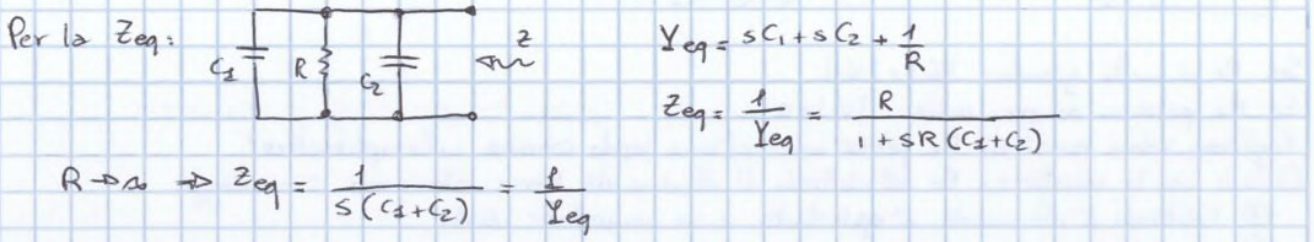 Per la Zeq: C1 R C2 Z
Yeq = sC1 + sC2 + 1/R
Zeq = 1/Yeq = R/(1 + sR(C1+C2))
R → ∞ ⇒ Zeq = 1/(s(C1+C2)) = 1/Yeq